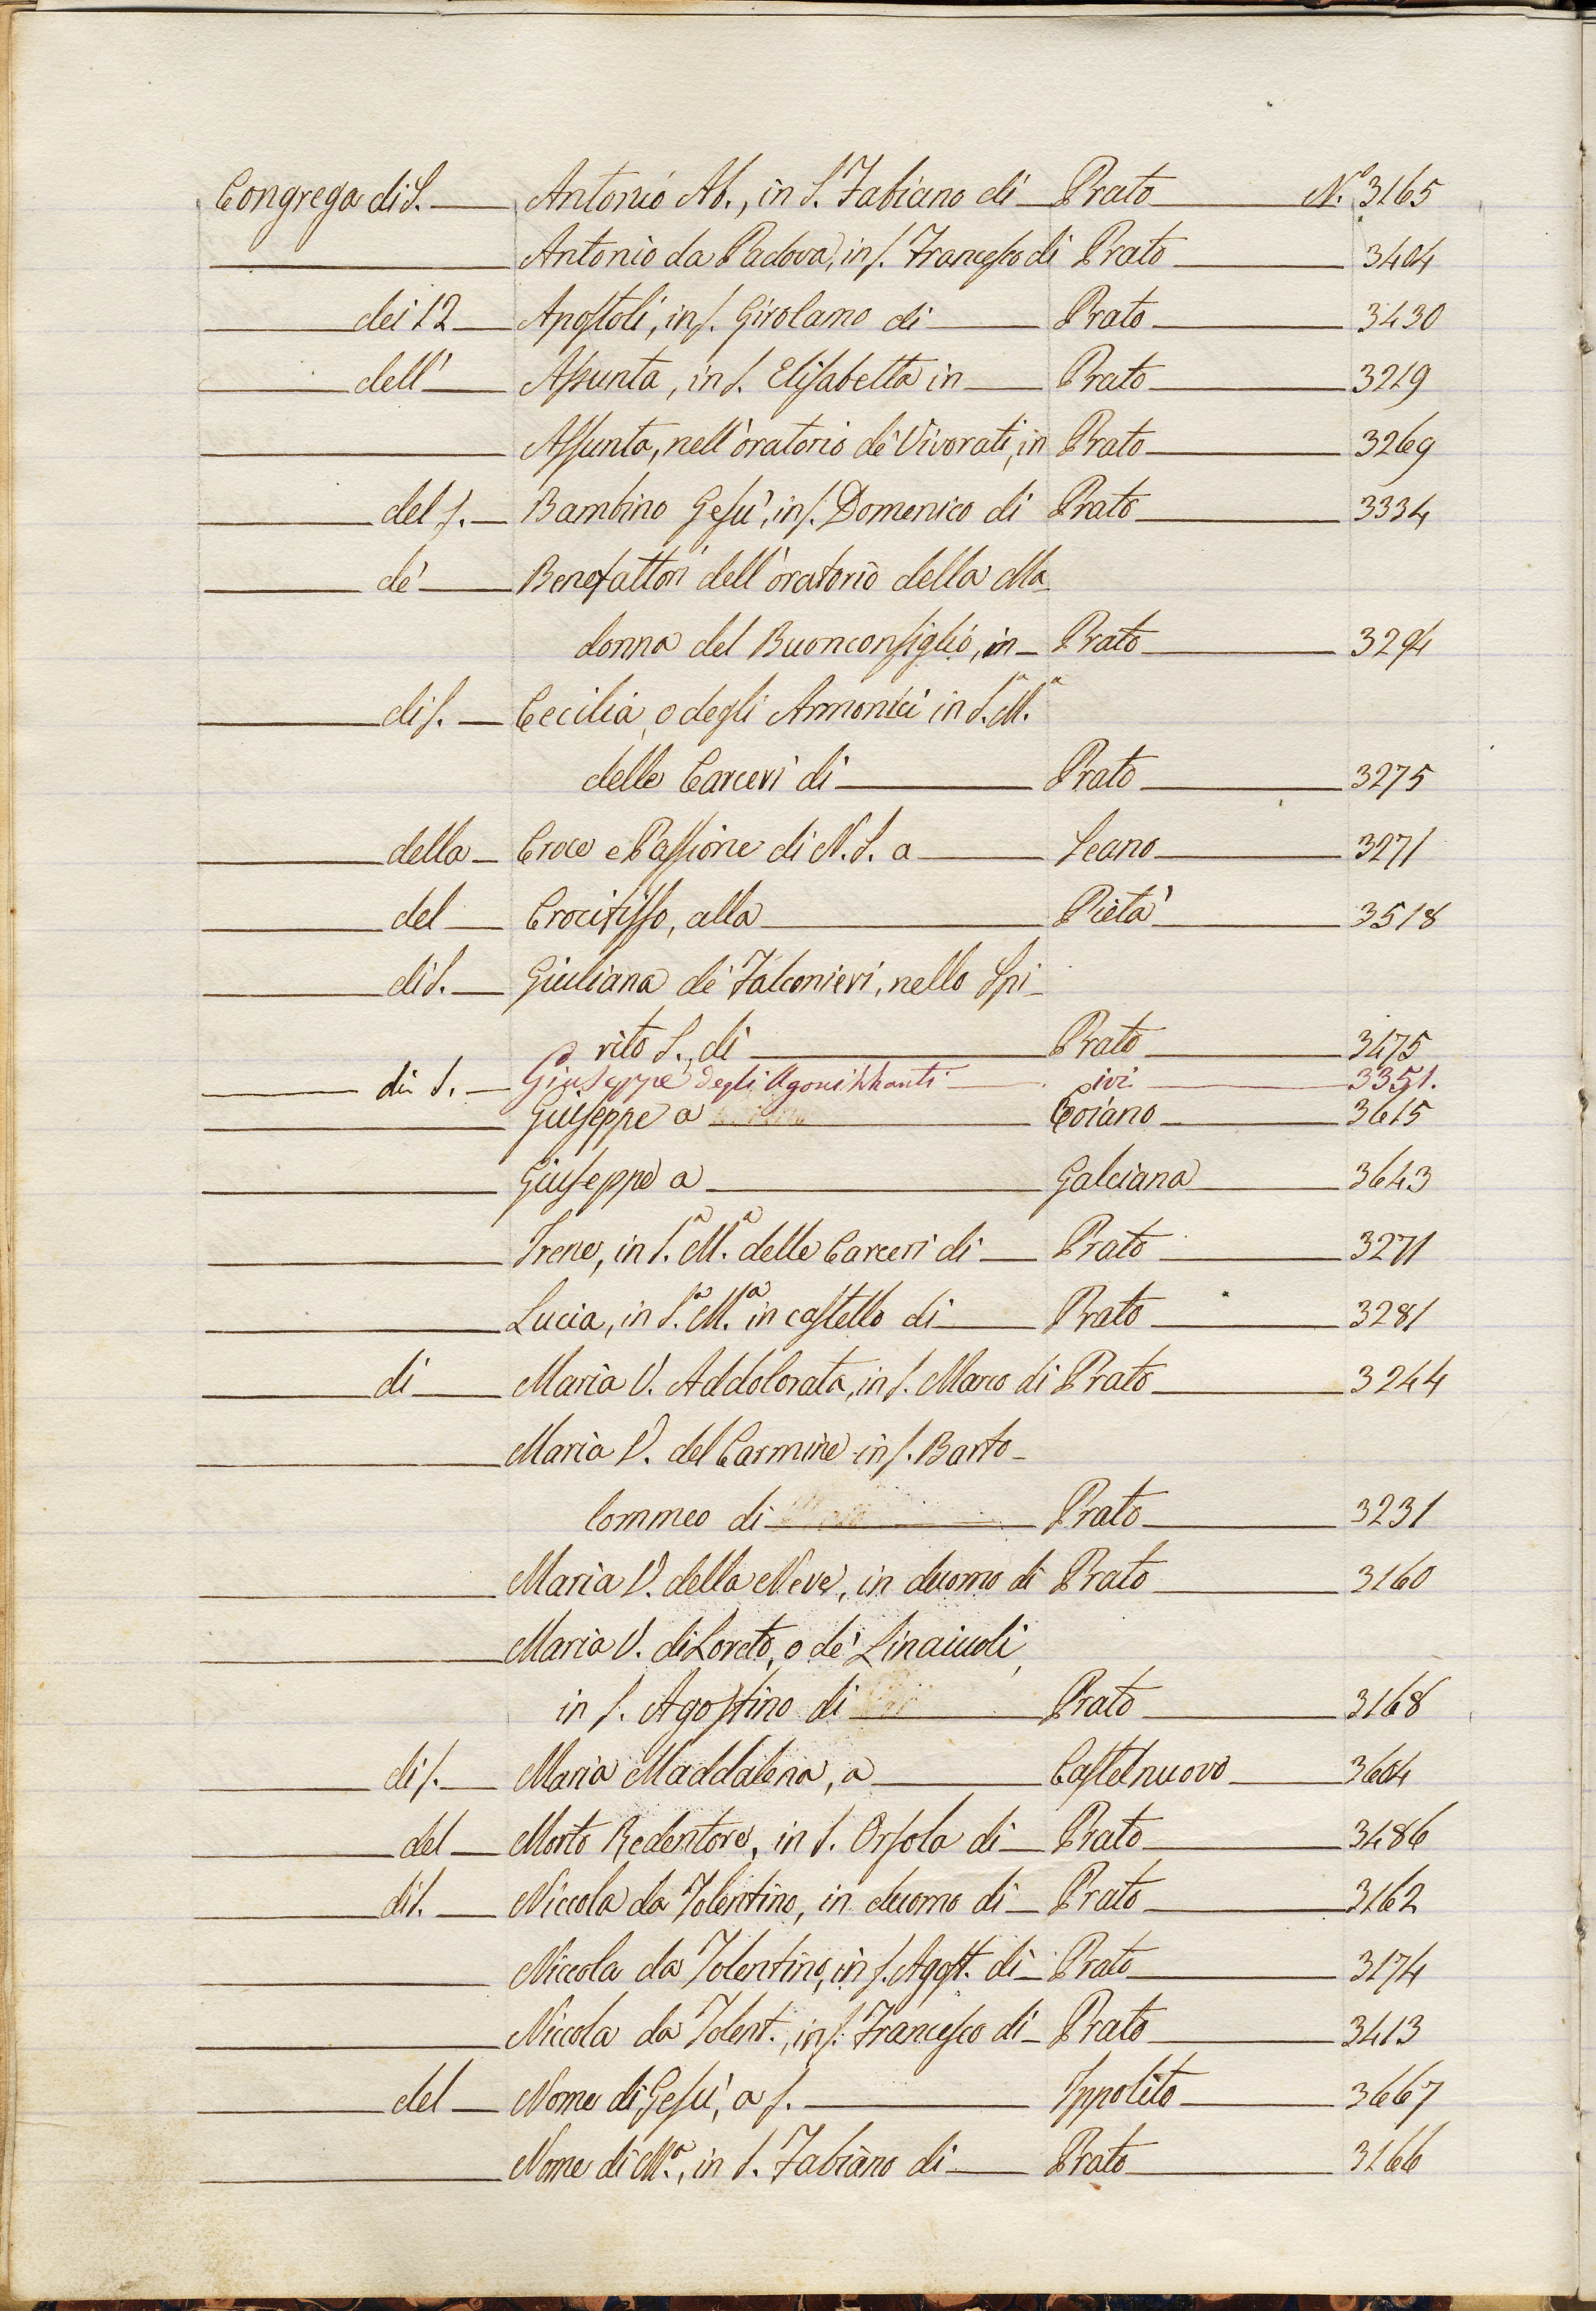 Congrega di S. Antonio Ab., in S. Fabiano di Prato N.° 3165
Antonio da Padova, in S. Francesco di Prato 3404
dei 12 Apostoli, in S. Girolamo di Prato 3430
dell' Assunta, in S. Elisabetta in Prato 3219
Assunta, nell'oratorio de' Vivorati, in Prato 3269
del S. Bambino Gesù, in S. Domenico di Prato 3334
de' Benefattori dell'oratorio della Ma-
donna del Buonconsiglio, in Prato 3294
di S. Cecilia, o degli Armonici in S.ª M.ª
delle Carceri di Prato 3275
della Croce e Passione di N. S. a Seano 3271
del Crocifisso, alla Pietà 3518
di S. Giuliana de' Falconieri, nello Spi-
rito S., di Prato 3475
di S. Giuseppe degli Agonizzanti ivi 3351.
Giuseppe a Coiano 3615
Giuseppe a Galciana 3643
Irene, in S.ª M.ª delle Carceri di Prato 3271
Lucia, in S.ª M.ª in castello di Prato 3281
di Maria V. Addolorata, in S. Marco di Prato 3244
Maria V. del Carmine in S. Barto-
lommeo di Prato 3231
Maria V. della Neve, in duomo di Prato 3160
Maria V. di Loreto, o de' Linaiuoli,
in S. Agostino di Prato 3168
di S. Maria Maddalena, a Castelnuovo 3604
del Morto Redentore, in S. Orsola di Prato 3486
di S. Niccola da Tolentino, in duomo di Prato 3162
Niccola da Tolentino, in S. Agost. di Prato 3174
Niccola da Tolent., in S. Francesco di Prato 3413
del Nome di Gesù, a S. Ippolito 3667
Nome di M.ª, in S. Fabiano di Prato 3166